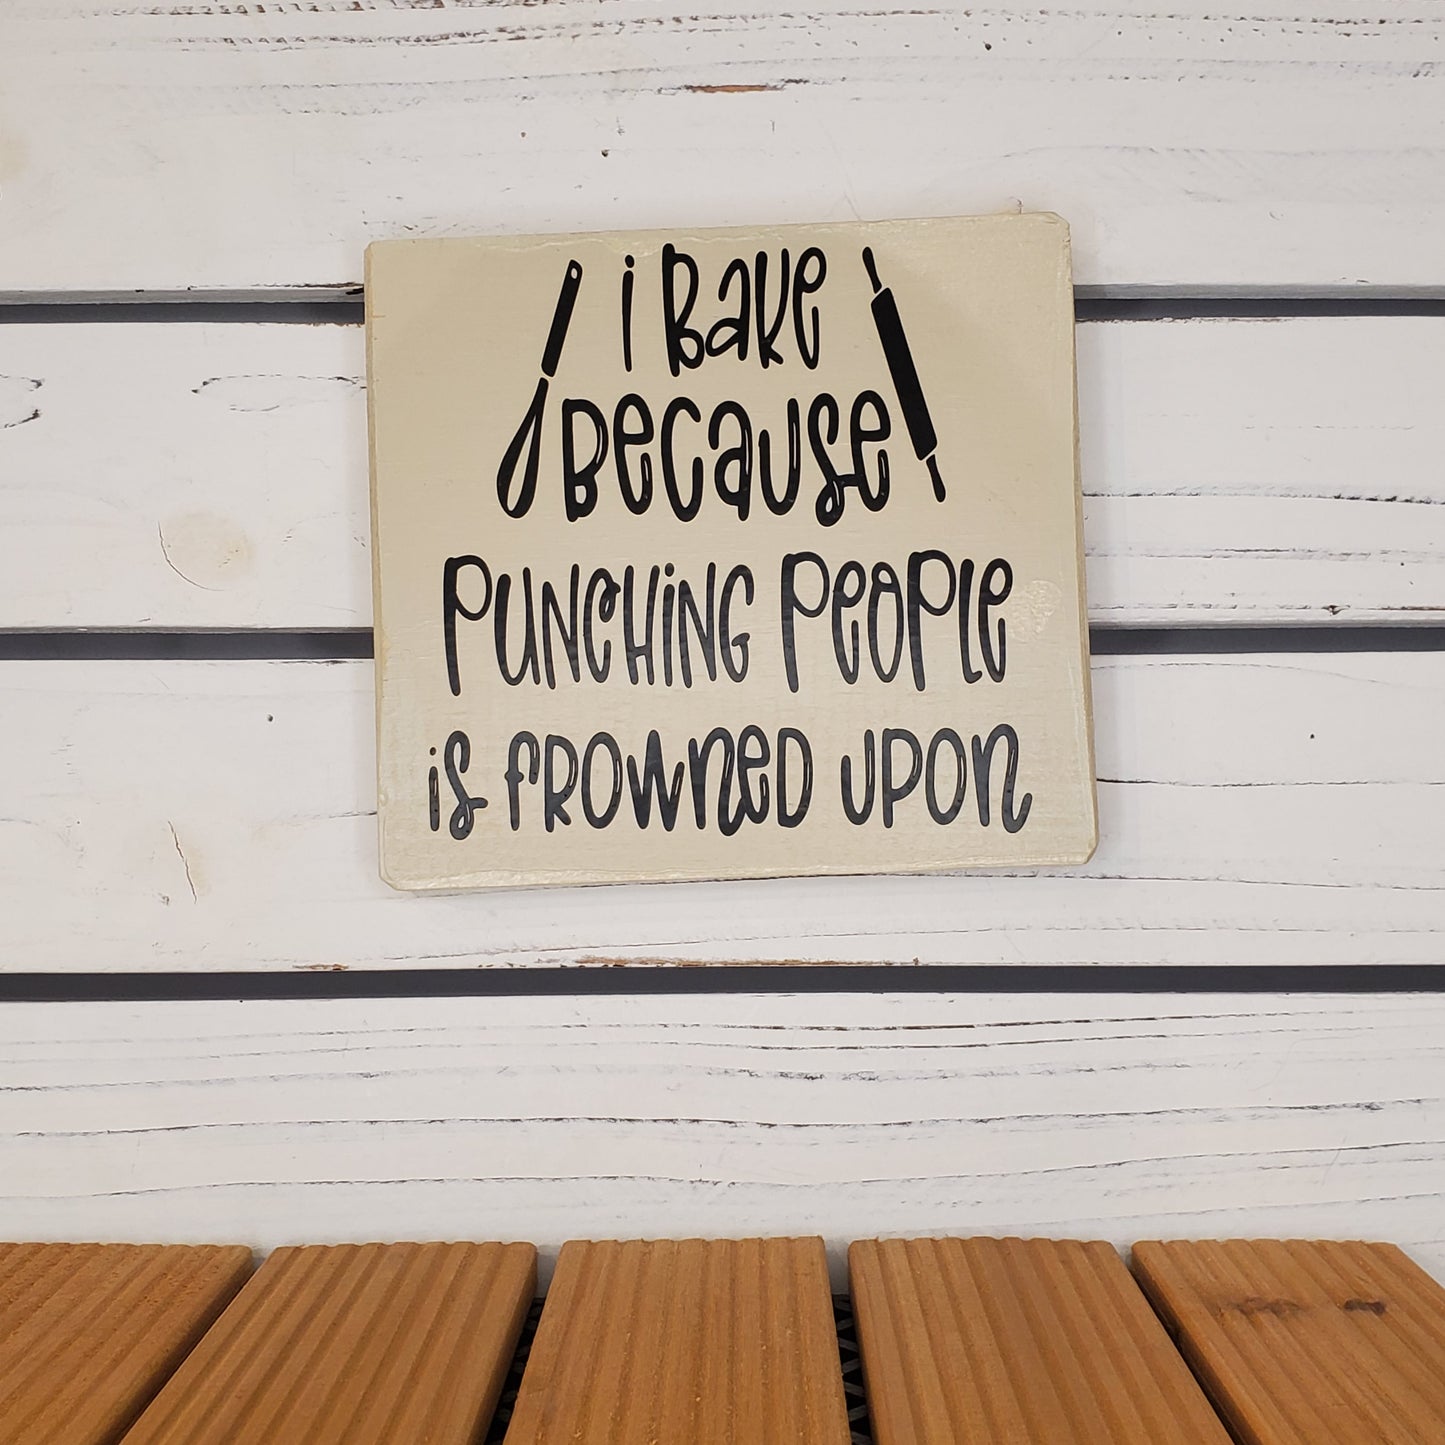 i Bake
Because
Punching People
is frowned upon